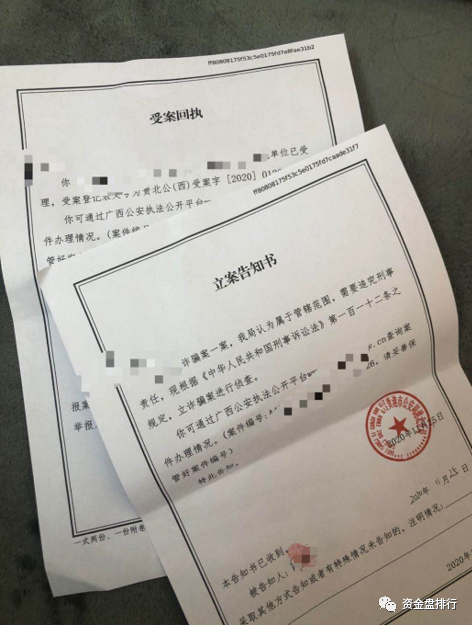 ff80808175f53c5e0175fd7a8fae31b2
受案回执
你
单位已受
理,受案登记表文号为贵北公(西)受案字[2020]
你可通过广西公安执法公开平台
件办理情况。(案件编号
管好
报案
举报
一式两份,一份附卷
ff80808175f53c5e0175fd7caade31f7
立案告知书
诈骗案一案,我局认为属于管辖范围,需要追究刑事
责任,现根据《中华人民共和国刑事诉讼法》第一百一十二条之
规定,立诈骗案进行侦查。
你可通过广西公安执法公开平台
.cn查询案
件办理情况。(案件编号:
请妥善保
管好案件编号)
特此告知。
2020年11月25日
2020年 11月 25日
本告知书已收到。
被告知人:
采取其他方式告知或者有特殊情况未告知的,注明情况:
2020年
资金盘排行